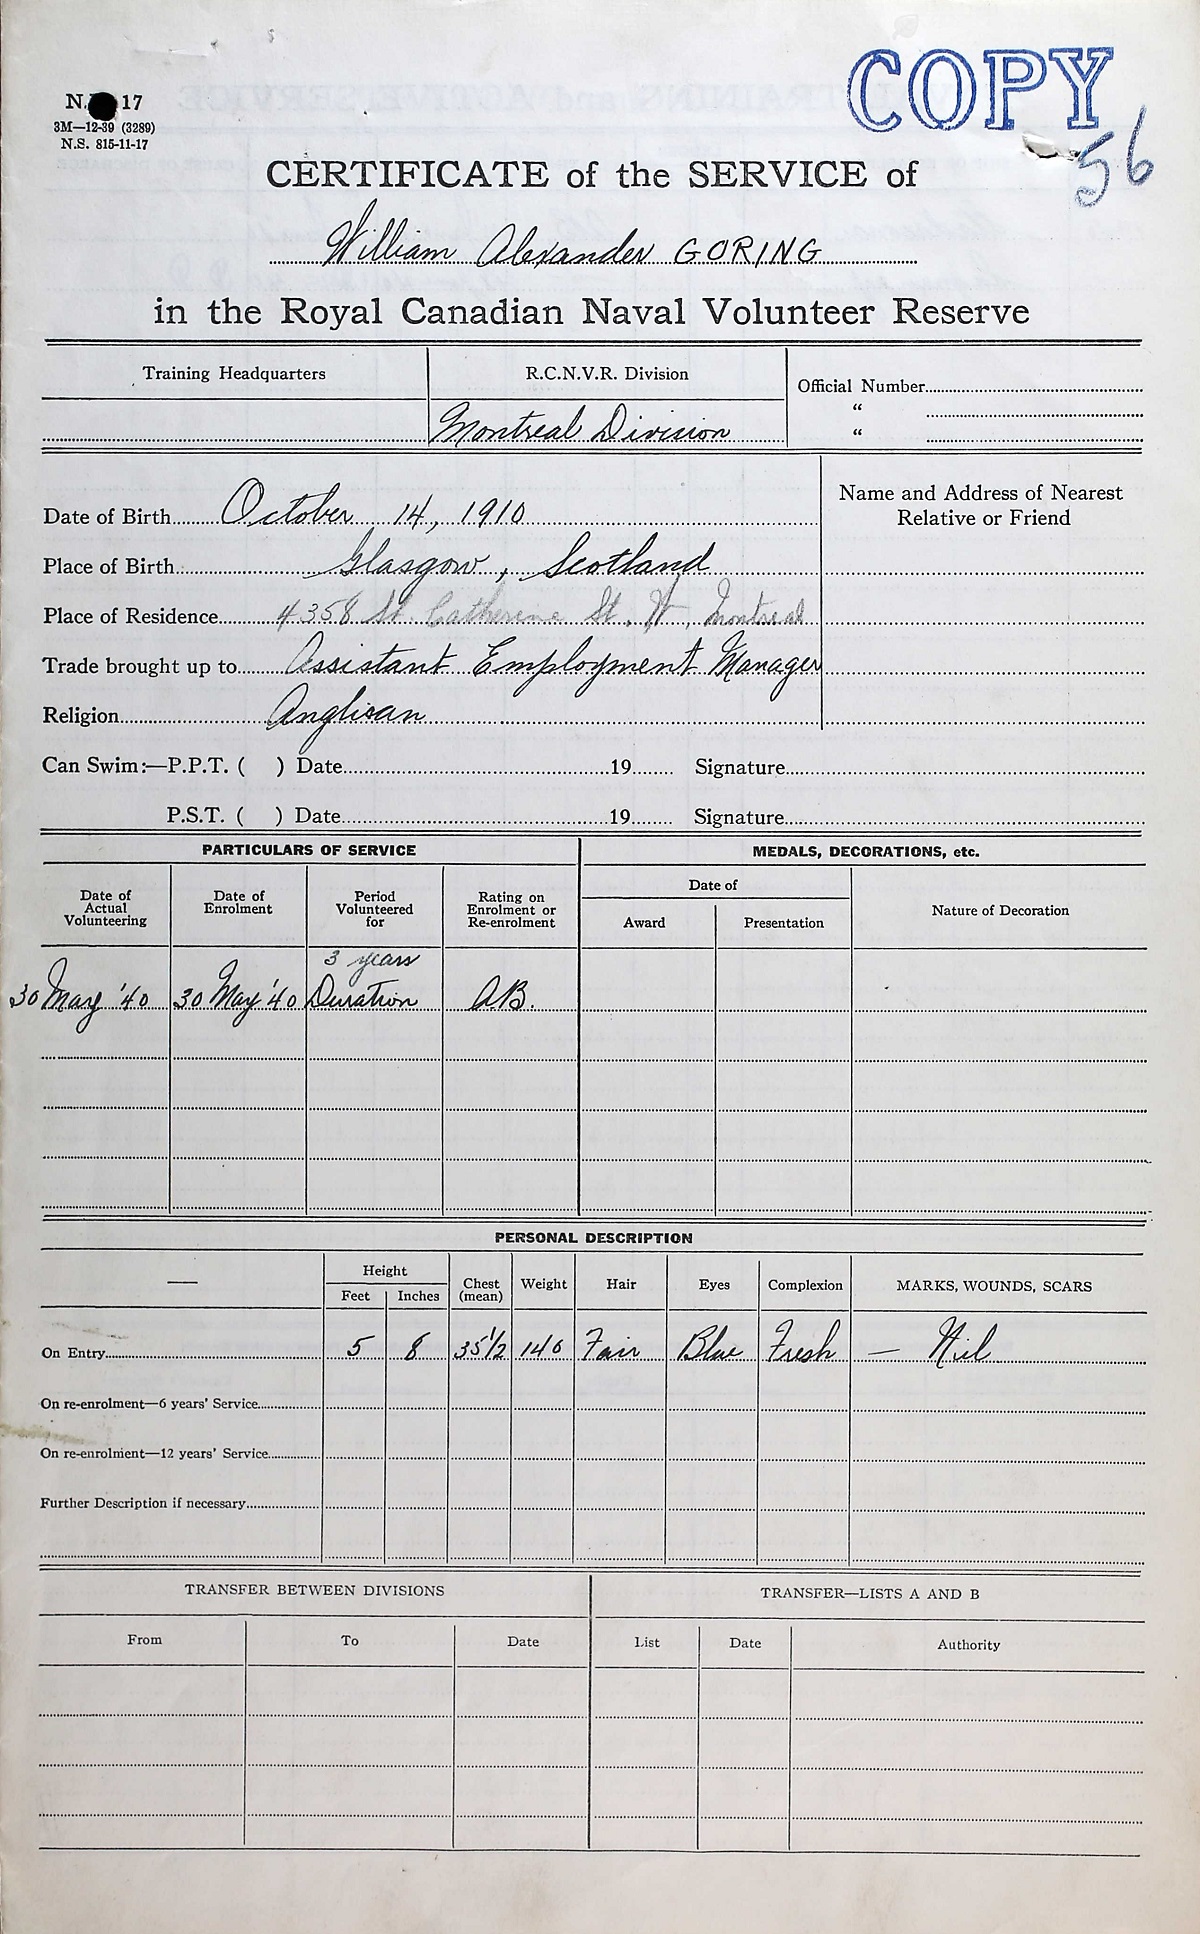 COPY
56
N. 17
3M—12-39 (3289)
N.S. 815-11-17
CERTIFICATE of the SERVICE of
William Alexander GORING
in the Royal Canadian Naval Volunteer Reserve
Training Headquarters
R.C.N.V.R. Division
Montreal Division
Official Number
“
“
Date of Birth October 14, 1910
Place of Birth Glasgow, Scotland
Place of Residence 4358 St. Catherine St. W, Montreal
Trade brought up to Assistant Employment Manager
Religion Anglican
Name and Address of Nearest
Relative or Friend
Can Swim:—P.P.T. ( ) Date 19 Signature
P.S.T. ( ) Date 19 Signature
PARTICULARS OF SERVICE
MEDALS, DECORATIONS, etc.
Date of
Actual
Volunteering
Date of
Enrolment
Period
Volunteered
for
Rating on
Enrolment or
Re-enrolment
Date of
Award
Presentation
Nature of Decoration
3 years
30 May '40 30 May '40 Duration AB.
PERSONAL DESCRIPTION
—
Height
Feet Inches
Chest
(mean)
Weight
Hair
Eyes
Complexion
MARKS, WOUNDS, SCARS
On Entry 5 8 35½ 140 Fair Blue Fresh — Nil
On re-enrolment—6 years' Service
On re-enrolment—12 years' Service
Further Description if necessary
TRANSFER BETWEEN DIVISIONS
TRANSFER—LISTS A AND B
From To Date List Date Authority